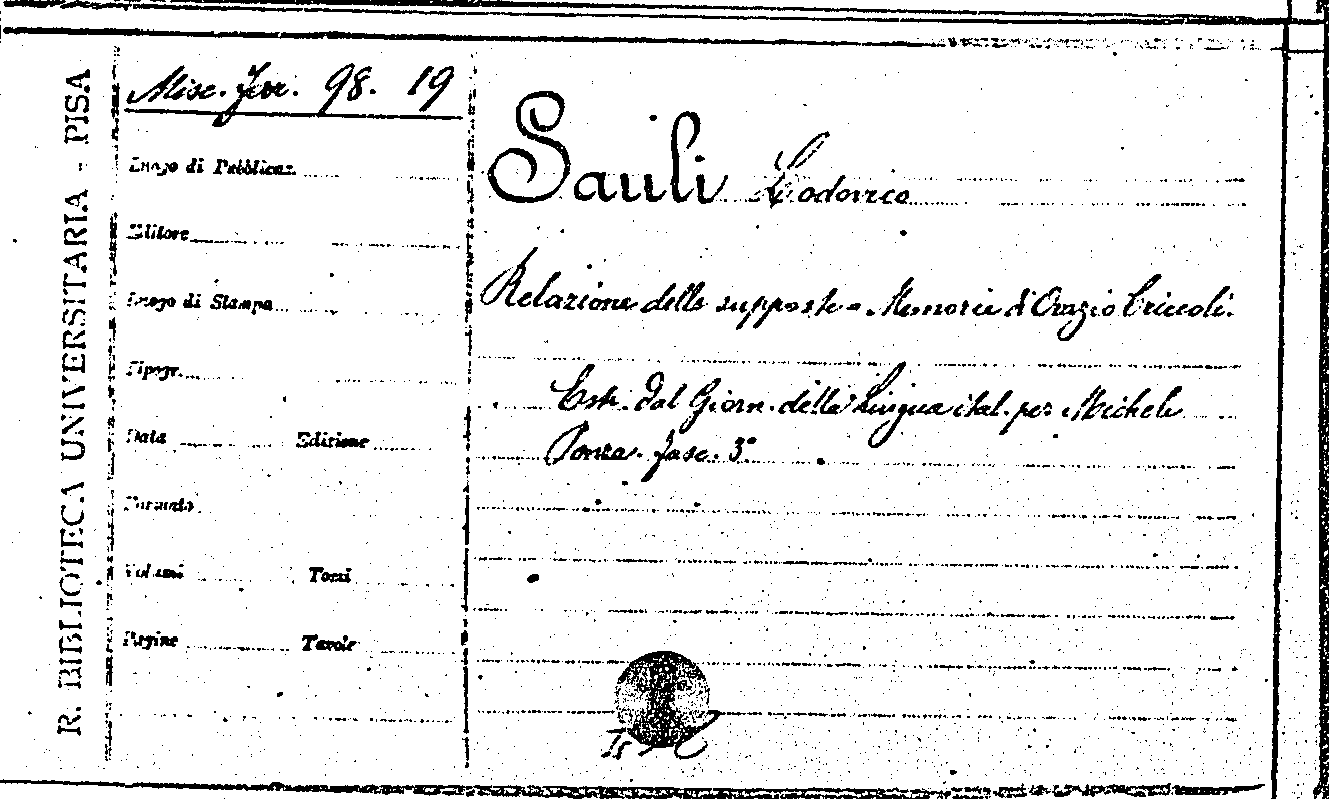 R. BIBLIOTECA UNIVERSITARIA - PISA
Misc. Ferr. 98. 19
Luogo di Pubblicaz.
Editore
Luogo di Stampa
Tipogr.
Data Edizione
Formato
Volumi Tomi
Pagine Tavole
Sauli Lodovico
Relazione delle supposte - Memorie d'Orazio
Estr. dal Giorn. della Lingua ital. per Michele
Ponza. fasc. 3°